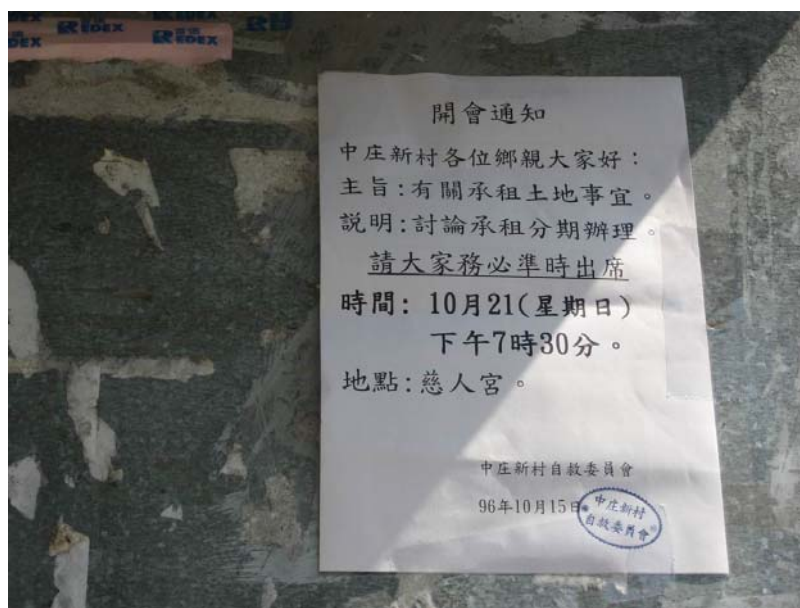 REDEX
REDEX
開會通知
中庄新村各位鄉親大家好：
主旨：有關承租土地事宜。
説明：討論承租分期辦理。
請大家務必準時出席
時間： 10月21(星期日)
下午7時30分。
地點：慈人宮。
中庄新村自救委員會
96年10月15日
中庄新村
自救委員會